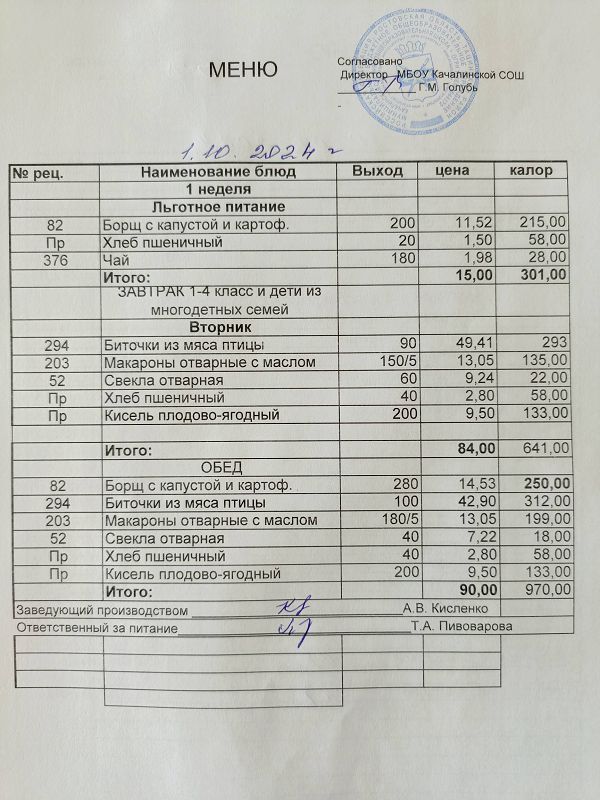 МЕНЮ
Согласовано
Директор МБОУ Качалинской СОШ
Г.М. Голубь
1.10.2024 г
№ рец. Наименование блюд Выход цена калор
1 неделя
Льготное питание
82 Борщ с капустой и картоф. 200 11,52 215,00
Пр Хлеб пшеничный 20 1,50 58,00
376 Чай 180 1,98 28,00
Итого: 15,00 301,00
ЗАВТРАК 1-4 класс и дети из
многодетных семей
Вторник
294 Биточки из мяса птицы 90 49,41 293
203 Макароны отварные с маслом 150/5 13,05 135,00
52 Свекла отварная 60 9,24 22,00
Пр Хлеб пшеничный 40 2,80 58,00
Пр Кисель плодово-ягодный 200 9,50 133,00
Итого: 84,00 641,00
ОБЕД
82 Борщ с капустой и картоф. 280 14,53 250,00
294 Биточки из мяса птицы 100 42,90 312,00
203 Макароны отварные с маслом 180/5 13,05 199,00
52 Свекла отварная 40 7,22 18,00
Пр Хлеб пшеничный 40 2,80 58,00
Пр Кисель плодово-ягодный 200 9,50 133,00
Итого: 90,00 970,00
Заведующий производством А.В. Кисленко
Ответственный за питание Т.А. Пивоварова